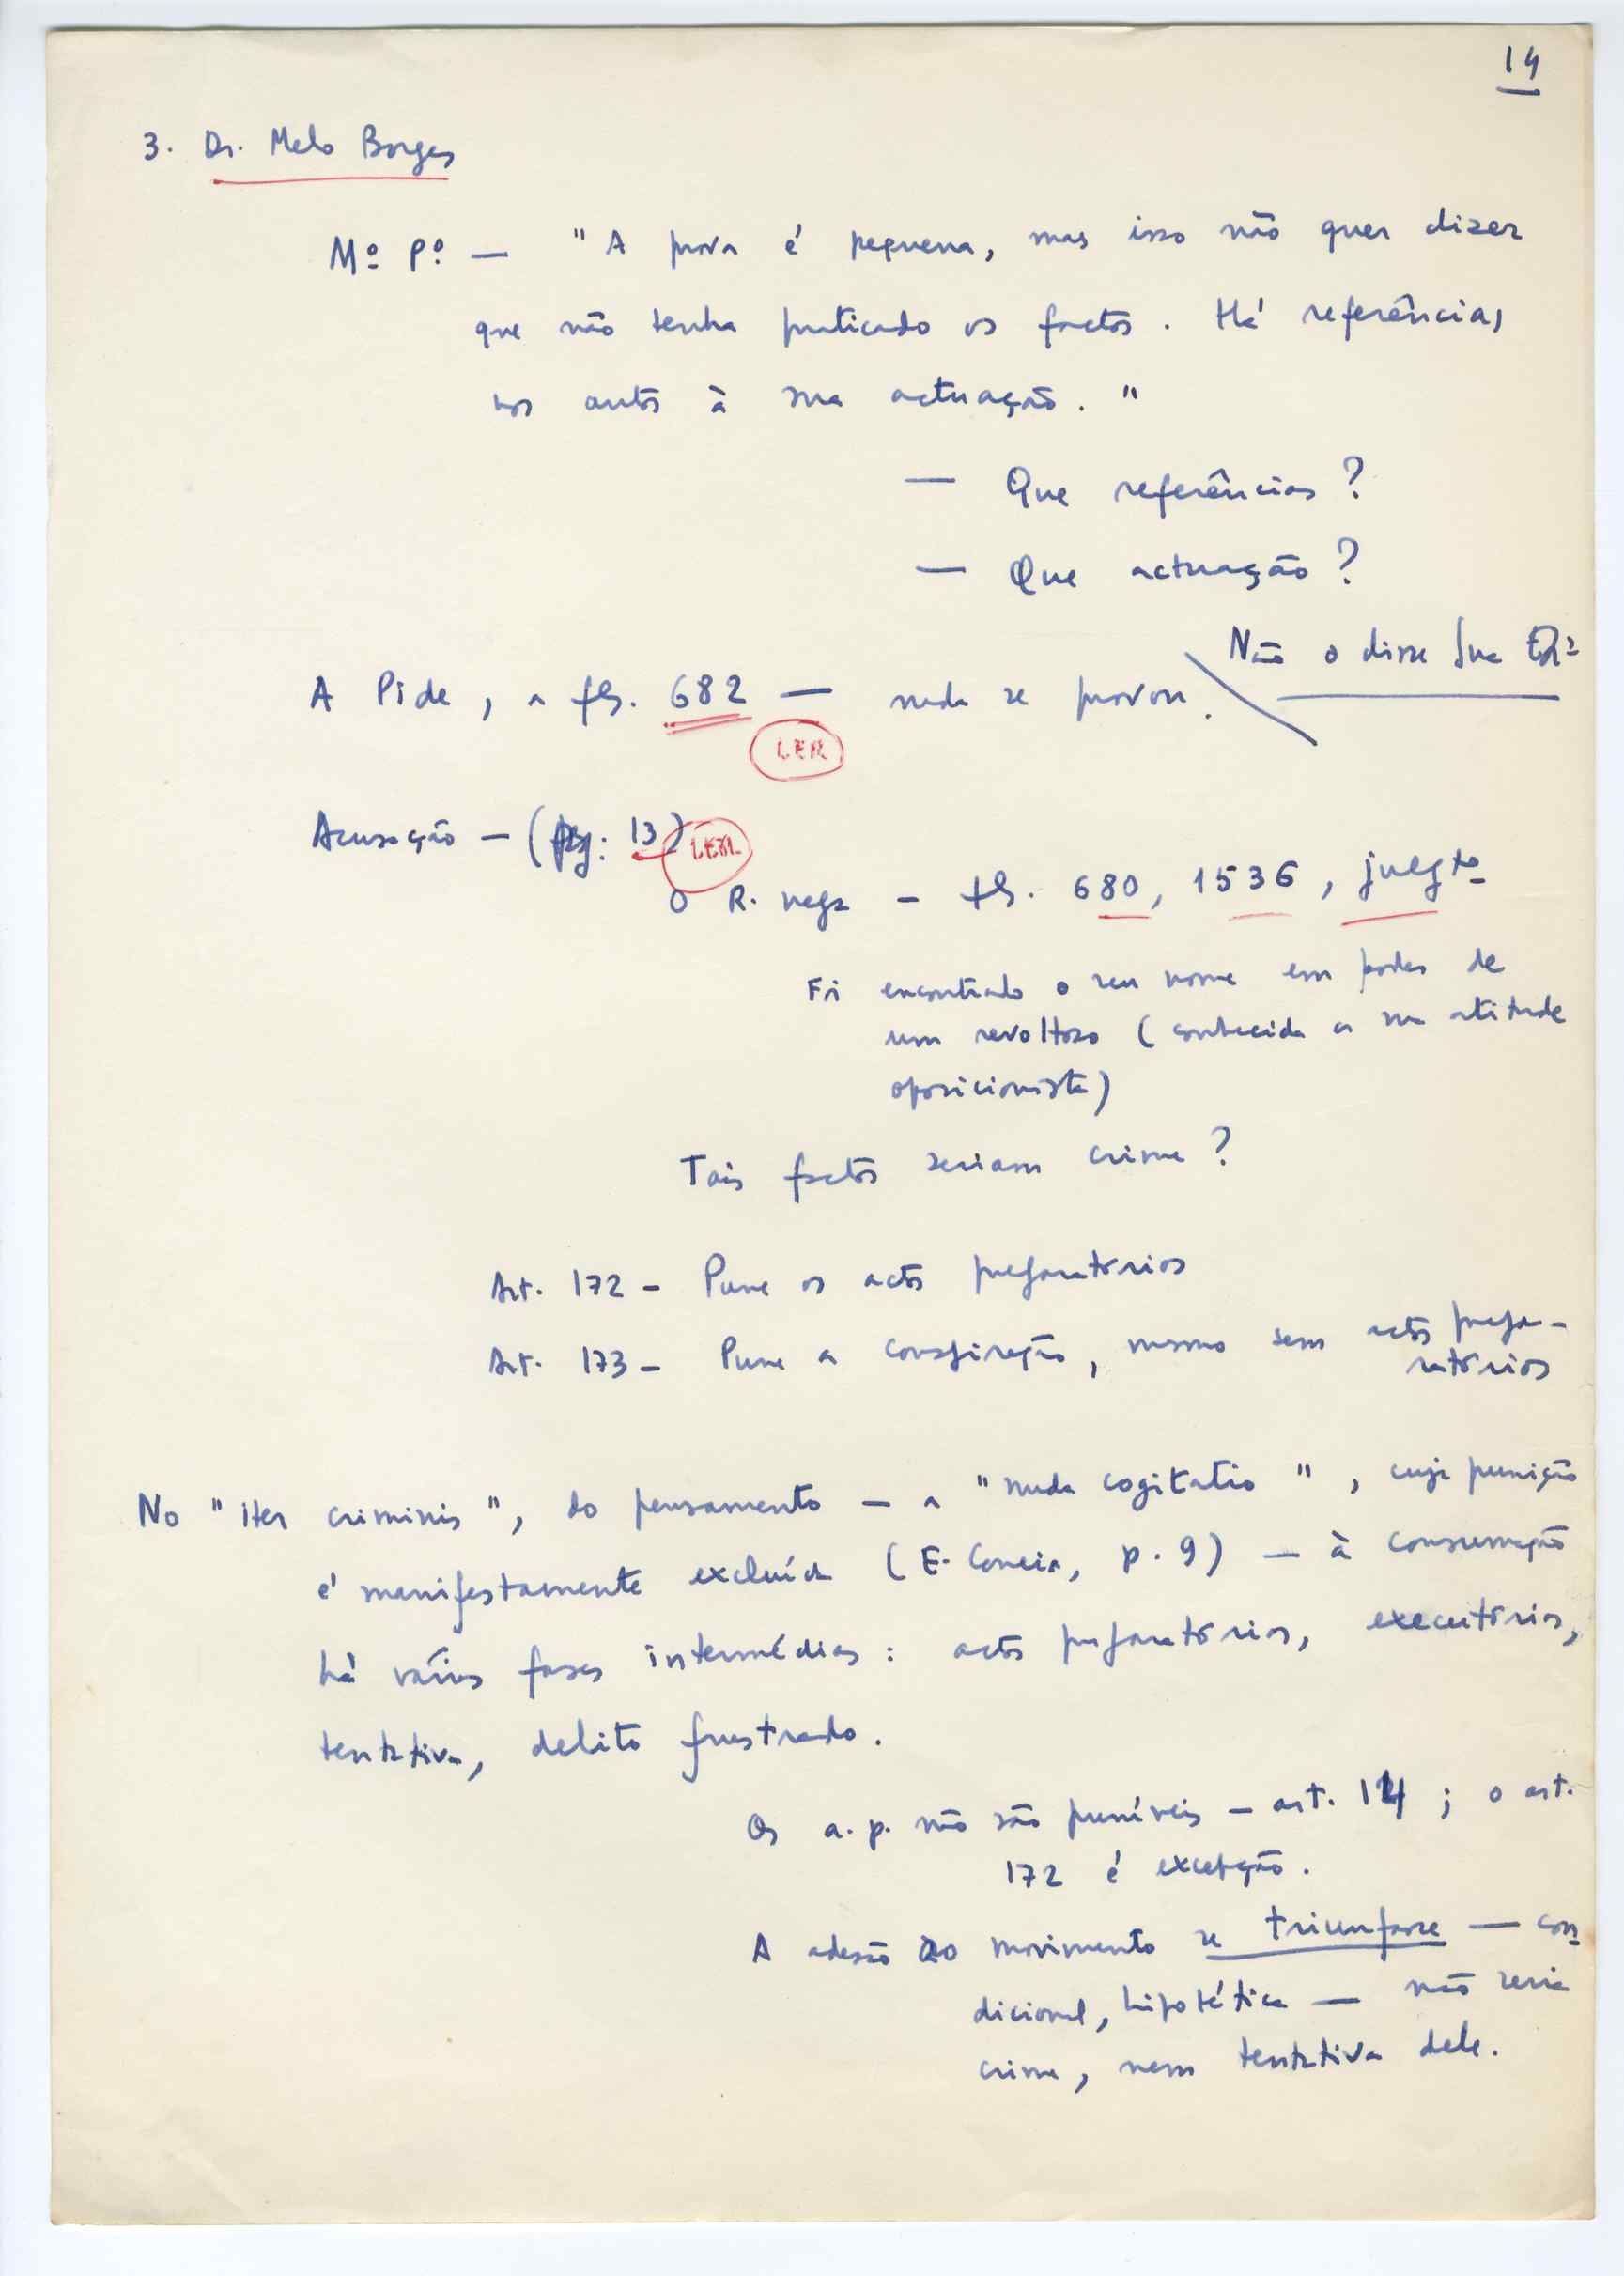 14
3. Dr. Melo Borges
Mº Pº — "A prova é pequena, mas isso não quer dizer
que não tenha praticado os factos. Há referências
nos autos à sua actuação."
— Que referências?
— Que actuação?
Não o disse Sua Exª
A Pide, a fls. 682 — nada se provou.
LER
Acusação — (pg: 13)
LER
O R. nega — fls. 680, 1536, julgtº
Foi encontrado o seu nome em poder de
um revoltoso (conhecida a sua atitude
oposicionista)
Tais factos seriam crime?
Art. 172 - Pune os actos preparatórios
Art. 173 - Pune a conspiração, mesmo sem actos prepa-
ratórios
No "iter criminis", do pensamento — a "nuda cogitatio", cuja punição
é manifestamente excluída (E. Correia, p. 9) — à consumação
há várias fases intermédias: actos preparatórios, executórios,
tentativa, delito frustrado.
Os a.p. não são puníveis — art. 14; o art.
172 é excepção.
A adesão ao movimento se triunfasse — con-
dicional, hipotética — não seria
crime, nem tentativa dele.